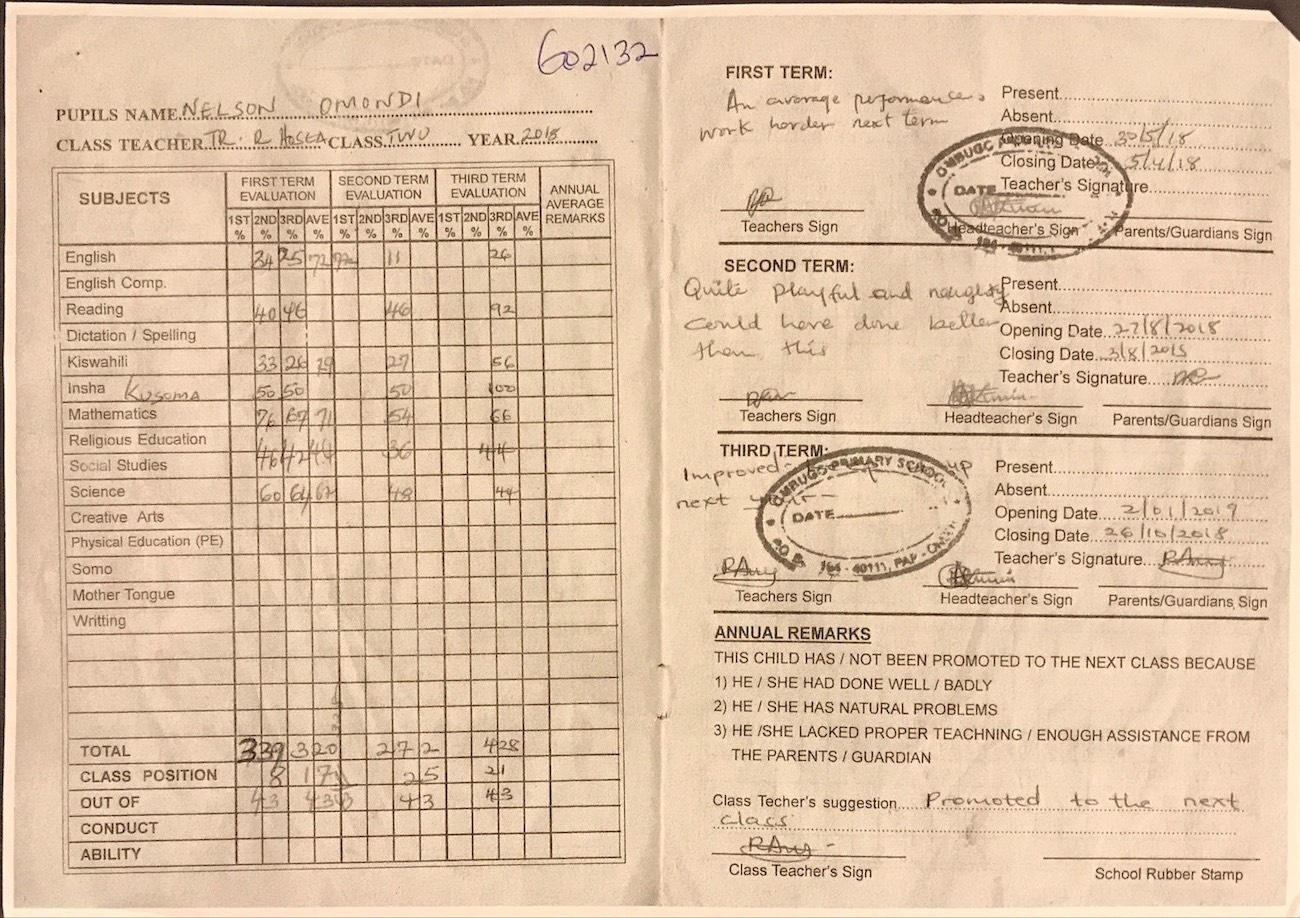 602132
PUPILS NAME NELSON OMONDI
CLASS TEACHER TR. R HOSEA CLASS TWO YEAR 2018
SUBJECTS FIRST TERM EVALUATION SECOND TERM EVALUATION THIRD TERM EVALUATION ANNUAL AVERAGE REMARKS
1ST % 2ND % 3RD % AVE % 1ST % 2ND % 3RD % AVE % 1ST % 2ND % 3RD % AVE %
English 34 25 72 11 26
English Comp.
Reading 40 46 46 92
Dictation / Spelling
Kiswahili 33 26 27 56
Insha Kusoma 50 50 50 100
Mathematics 76 67 71 54 66
Religious Education
Social Studies 46 42 44 36 44
Science 60 64 62 48 44
Creative Arts
Physical Education (PE)
Somo
Mother Tongue
Writting
TOTAL 339 320 272 428
CLASS POSITION 8 17 25 21
OUT OF 43 43 43 43
CONDUCT
ABILITY
FIRST TERM:
An average performance.
work harder next term
Present
Absent
Opening Date 30/5/18
Closing Date 5/4/18
Teacher's Signature
Teachers Sign Headteacher's Sign Parents/Guardians Sign
DATE
SECOND TERM:
Quite playful and naughty
could have done better
than this
Present
Absent
Opening Date 27/8/2018
Closing Date 3/8/2018
Teacher's Signature
Teachers Sign Headteacher's Sign Parents/Guardians Sign
THIRD TERM:
Improved up
next
OMBUGO PRIMARY SCHOOL
DATE
Present
Absent
Opening Date 2/01/2019
Closing Date 26/10/2018
Teacher's Signature
Teachers Sign Headteacher's Sign Parents/Guardians Sign
ANNUAL REMARKS
THIS CHILD HAS / NOT BEEN PROMOTED TO THE NEXT CLASS BECAUSE
1) HE / SHE HAD DONE WELL / BADLY
2) HE / SHE HAS NATURAL PROBLEMS
3) HE /SHE LACKED PROPER TEACHNING / ENOUGH ASSISTANCE FROM
THE PARENTS / GUARDIAN
Class Techer's suggestion Promoted to the next
class
Class Teacher's Sign School Rubber Stamp